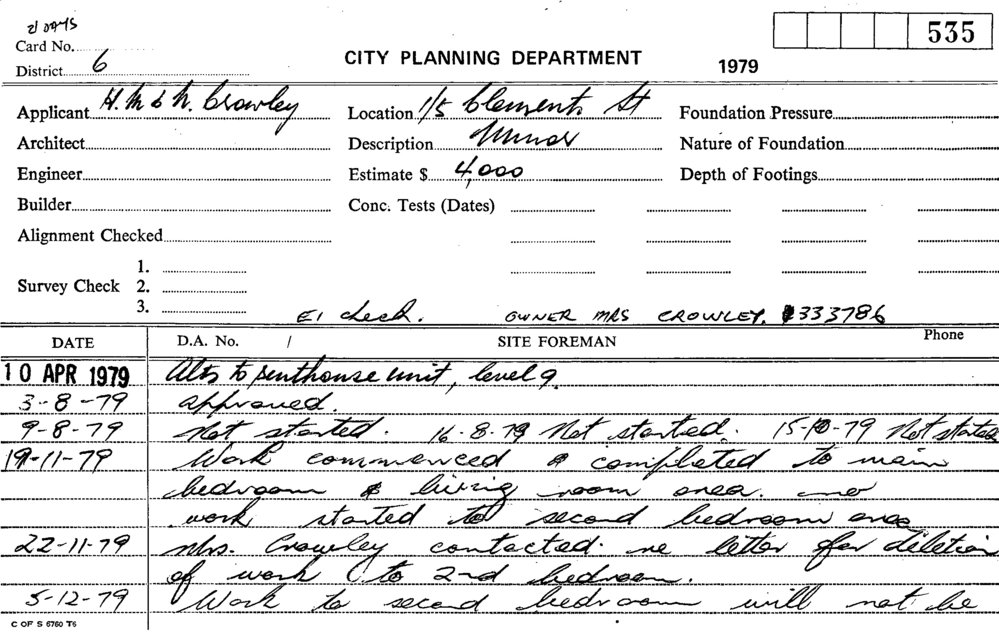 21 DAYS
Card No.
District 6
CITY PLANNING DEPARTMENT
1979
535
Applicant H. M & N. Crowley
Location 1/5 Clements St
Foundation Pressure
Architect
Description Minor
Nature of Foundation
Engineer
Estimate $ 4,000
Depth of Footings
Builder
Conc. Tests (Dates)
Alignment Checked
Survey Check
1.
2.
3.
EI check. OWNER MRS CROWLEY. 333786
DATE
D.A. No. /
SITE FOREMAN
Phone
10 APR 1979 Alts to penthouse unit, level 9.
3-8-79 approved.
9-8-79 Not started. 16-8-79 Not started. 15-10-79 Not started
19-11-79 Work commenced & completed to main
bedroom & living room area. no
work started to second bedroom area
22-11-79 Mrs. Crowley contacted re letter for deletion
of work to 2nd bedroom.
5-12-79 Work to second bedroom will not be
C OF S 6760 T6